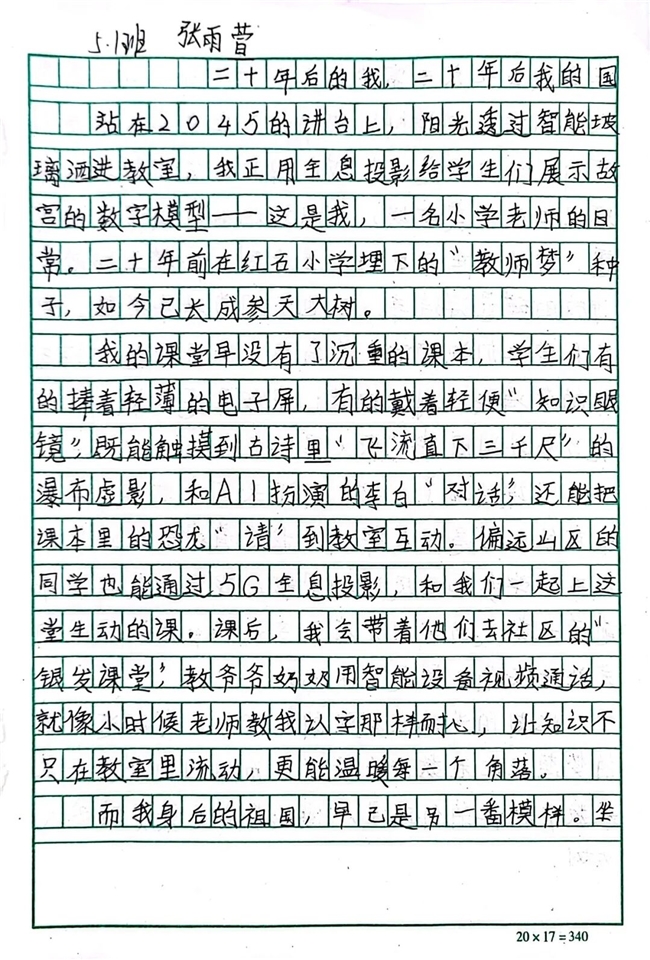 5.1班 张雨萱
二十年后的我，二十年后我的国
站在2045的讲台上，阳光透过智能玻
璃洒进教室，我正用全息投影给学生们展示故
宫的数字模型——这是我，一名小学老师的日
常。二十年前在红五小学埋下的“教师梦”种
子，如今已长成参天大树。
我的课堂早没有了沉重的课本，学生们有
的捧着轻薄的电子屏，有的戴着轻便“知识眼
镜”，既能触摸到古诗里“飞流直下三千尺”的
瀑布虚影，和AI扮演的李白“对话”，还能把
课本里的恐龙“请”到教室互动。偏远山区的
同学也能通过5G全息投影，和我们一起上这
堂生动的课。课后，我会带着他们去社区的“
银发课堂”，教爷爷奶奶用智能设备视频通话，
就像小时候老师教我认字那样耐心，让知识不
只在教室里流动，更能温暖每一个角落。
而我身后的祖国，早已是另一番模样。坐
20×17=340